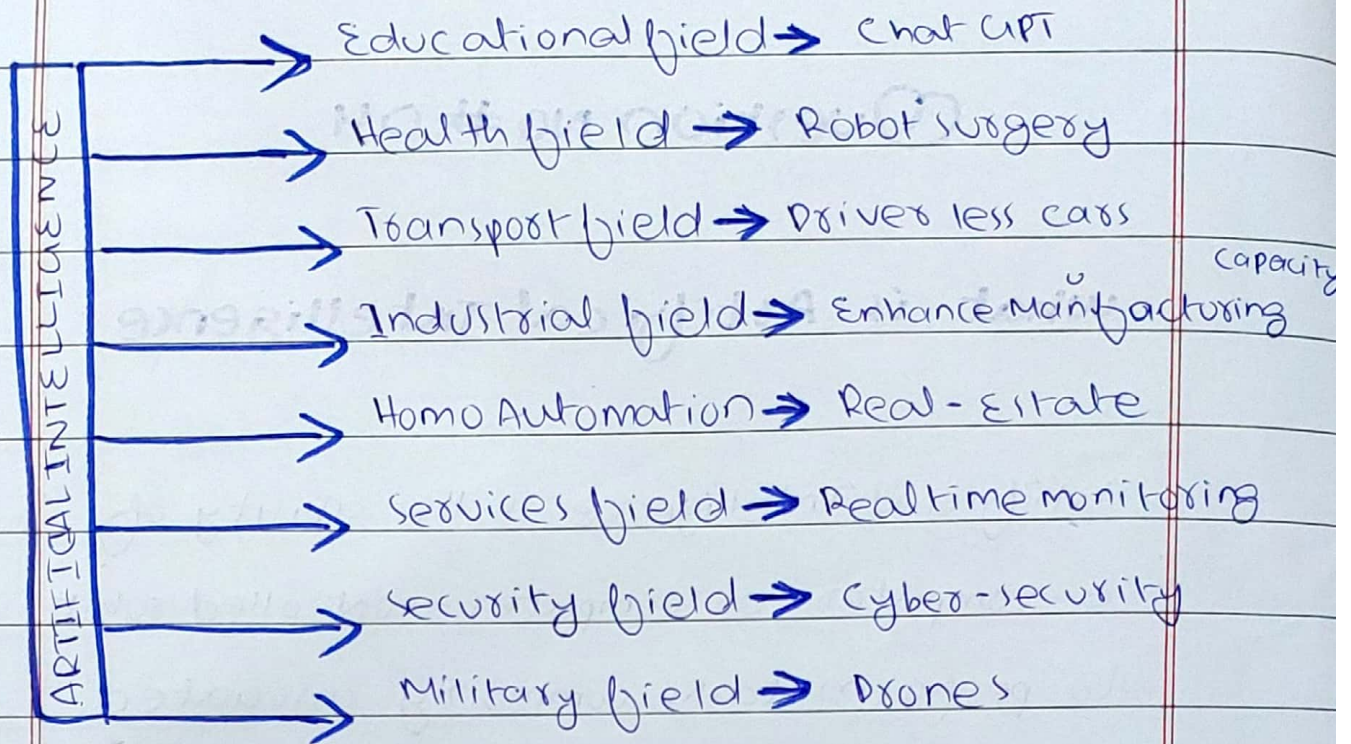 ARTIFICAL INTELLIGENCE
Educational field → Chat GPT
Health field → Robot surgery
Transport field → Driver less cars
capacity
Industrial field → Enhance Manufracturing
Homo Automation → Real - Estate
Services field → Realtime monitoring
Security field → Cyber-security
Military field → Drones